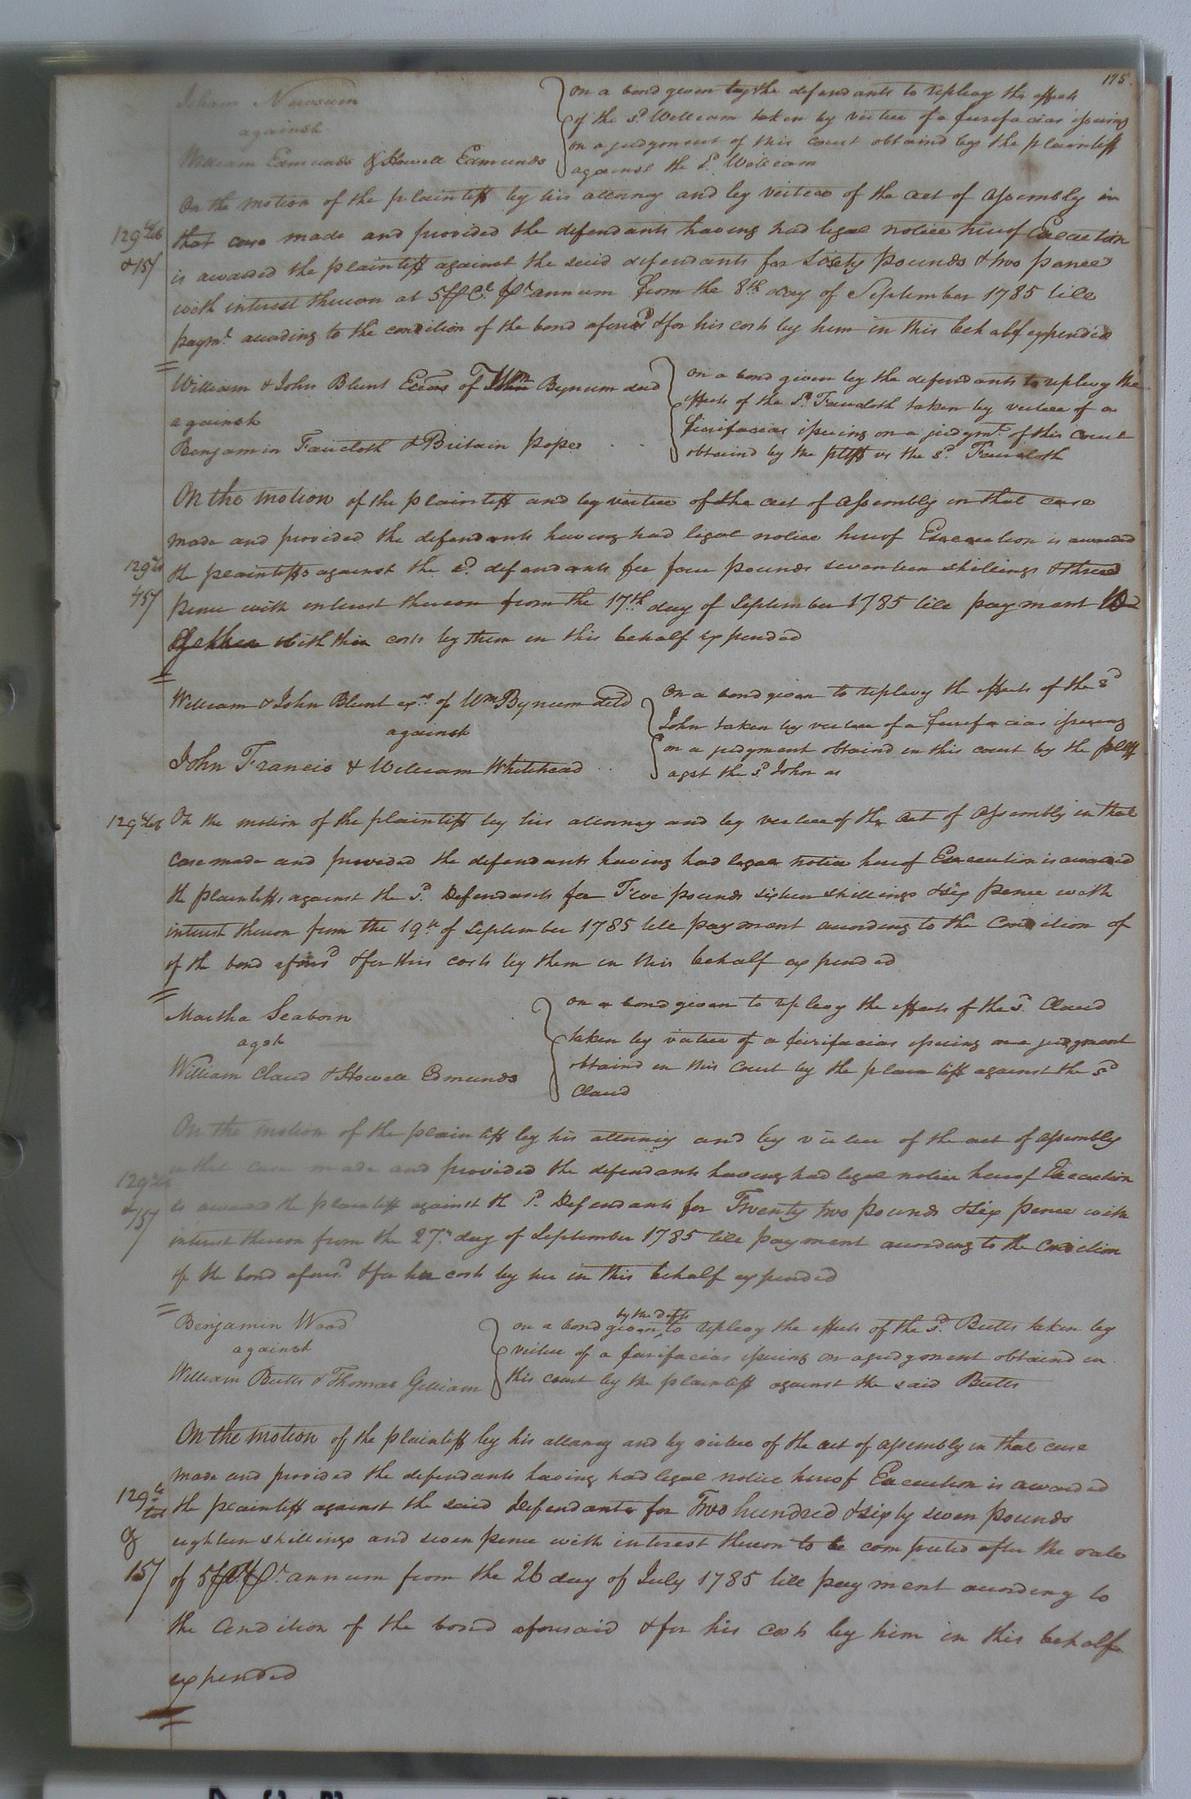 175
Newsum
against
William Edmunds & Howell Edmunds
on a bond given by the defendants to repleay the effects
of the sd. William taken by virtue of a firefacias issuing
on a judgment of this court obtaind by the plaintiff
against the sd. William
On the motion of the plaintiff by his attorney and by virtue of the act of Assembly in
129
that case made and provided the defendants having had legal notice hereof Execution
& 157
is awarded the plaintiff against the said defendants for pounds & two pence
with interest thereon at 5 annum from the 8th day of September 1785 till
paymt. according to the condition of the bond aforesd & for his costs by him in this behalf expended
William & John Blunt Exors of Wm Bynum decd
against
Benjamin Faircloth & Britain pope
on a bond given by the defendants to repleay the
effects of the sd. Faircloth taken by virtue of a
firifacias issuing on a judgmt. of this court
obtaind by the pltffs vs the sd. Faircloth
On the motion of the plaintiff and by virtue of the act of Assembly in that case
made and provided the defendants having had legal notice hereof Execution is awarded
129
the plaintiffs against the sd. defendants for four pounds seventeen shillings & three
157
pence with interest thereon from the 17th day of September 1785 till payment
with their costs by them in this behalf expended
William & John Blunt exrs of Wm Bynum decd
against
John Francis & William Whitehead
On a bond given to repleay the effects of the sd
John taken by virtue of a firefacias issuing
on a judgment obtaind in this court by the pltff
agst the sd John
129
On the motion of the plaintiff by his attorney and by virtue of the act of Assembly in that
case made and provided the defendants having had legal notice hereof Execution is awarded
the plaintiffs against the sd. Defendants for Five pounds sixteen shillings & six pence with
interest thereon from the 19th of September 1785 till payment according to the Condition of
of the bond aforesd & for this costs by them in this behalf expended
Martha Seaborn
agst
William Claud & Howell Edmunds
on a bond given to repleay the effects of the sd. Claud
taken by virtue of a firifacias issuing on a judgment
obtaind in this Court by the plaintiff against the sd
Claud
On the motion of the plaintiff by his attorney and by virtue of the act of Assembly
129
in that case made and provided the defendants having had legal notice hereof Execution
& 157
is awarded the plaintiff against the sd. Defendants for Twenty two pounds & six pence with
interest thereon from the 27th day of September 1785 till payment according to the Condition
of the bond aforesd. & for her costs by her in this behalf expended
Benjamin Wood
against
William Butts & Thomas Gilliam
by the defts
on a bond given to repleay the effects of the sd. Butts taken by
virtue of a firifacias issuing on a judgment obtaind in
this court by the plaintiff against the said Butts
On the motion of the plaintiff by his attorney and by virtue of the act of Assembly in that case
made and provided the defendants having had legal notice hereof Execution is awarded
129
the plaintiff against the said Defendants for Two hundred & sixty seven pounds
&
eighteen shillings and seven pence with interest thereon to be computed after the rate
157
of 5 annum from the 26 day of July 1785 till payment according to
the Condition of the bond aforesaid & for his costs by him in this behalf
expended